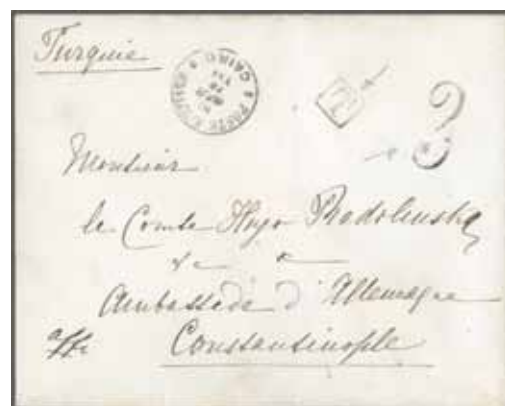 Turquie
CAIRO
T
Monsieur
le Comte Hugo Radolinsky
Ambassade d'Allemagne
Constantinople